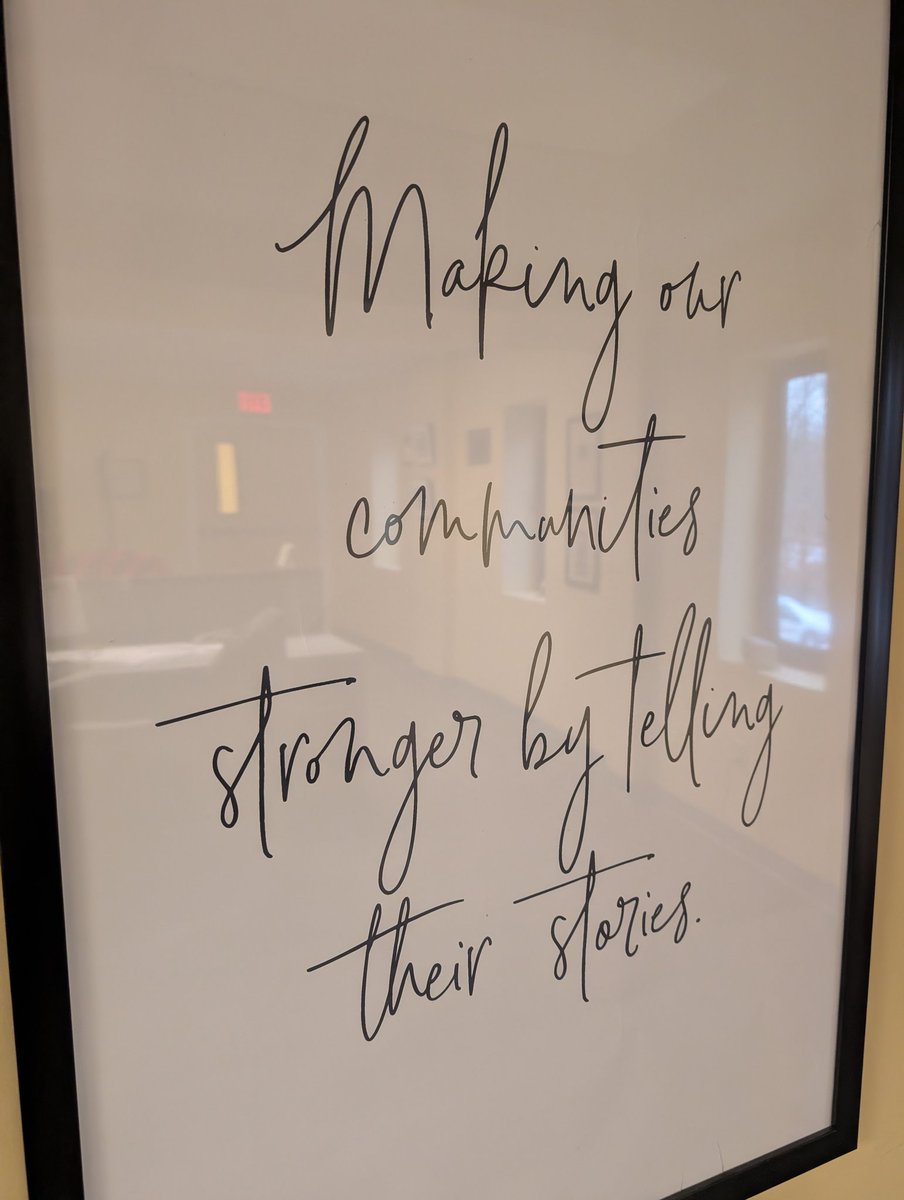 Making our
communities
stronger by telling
their stories.